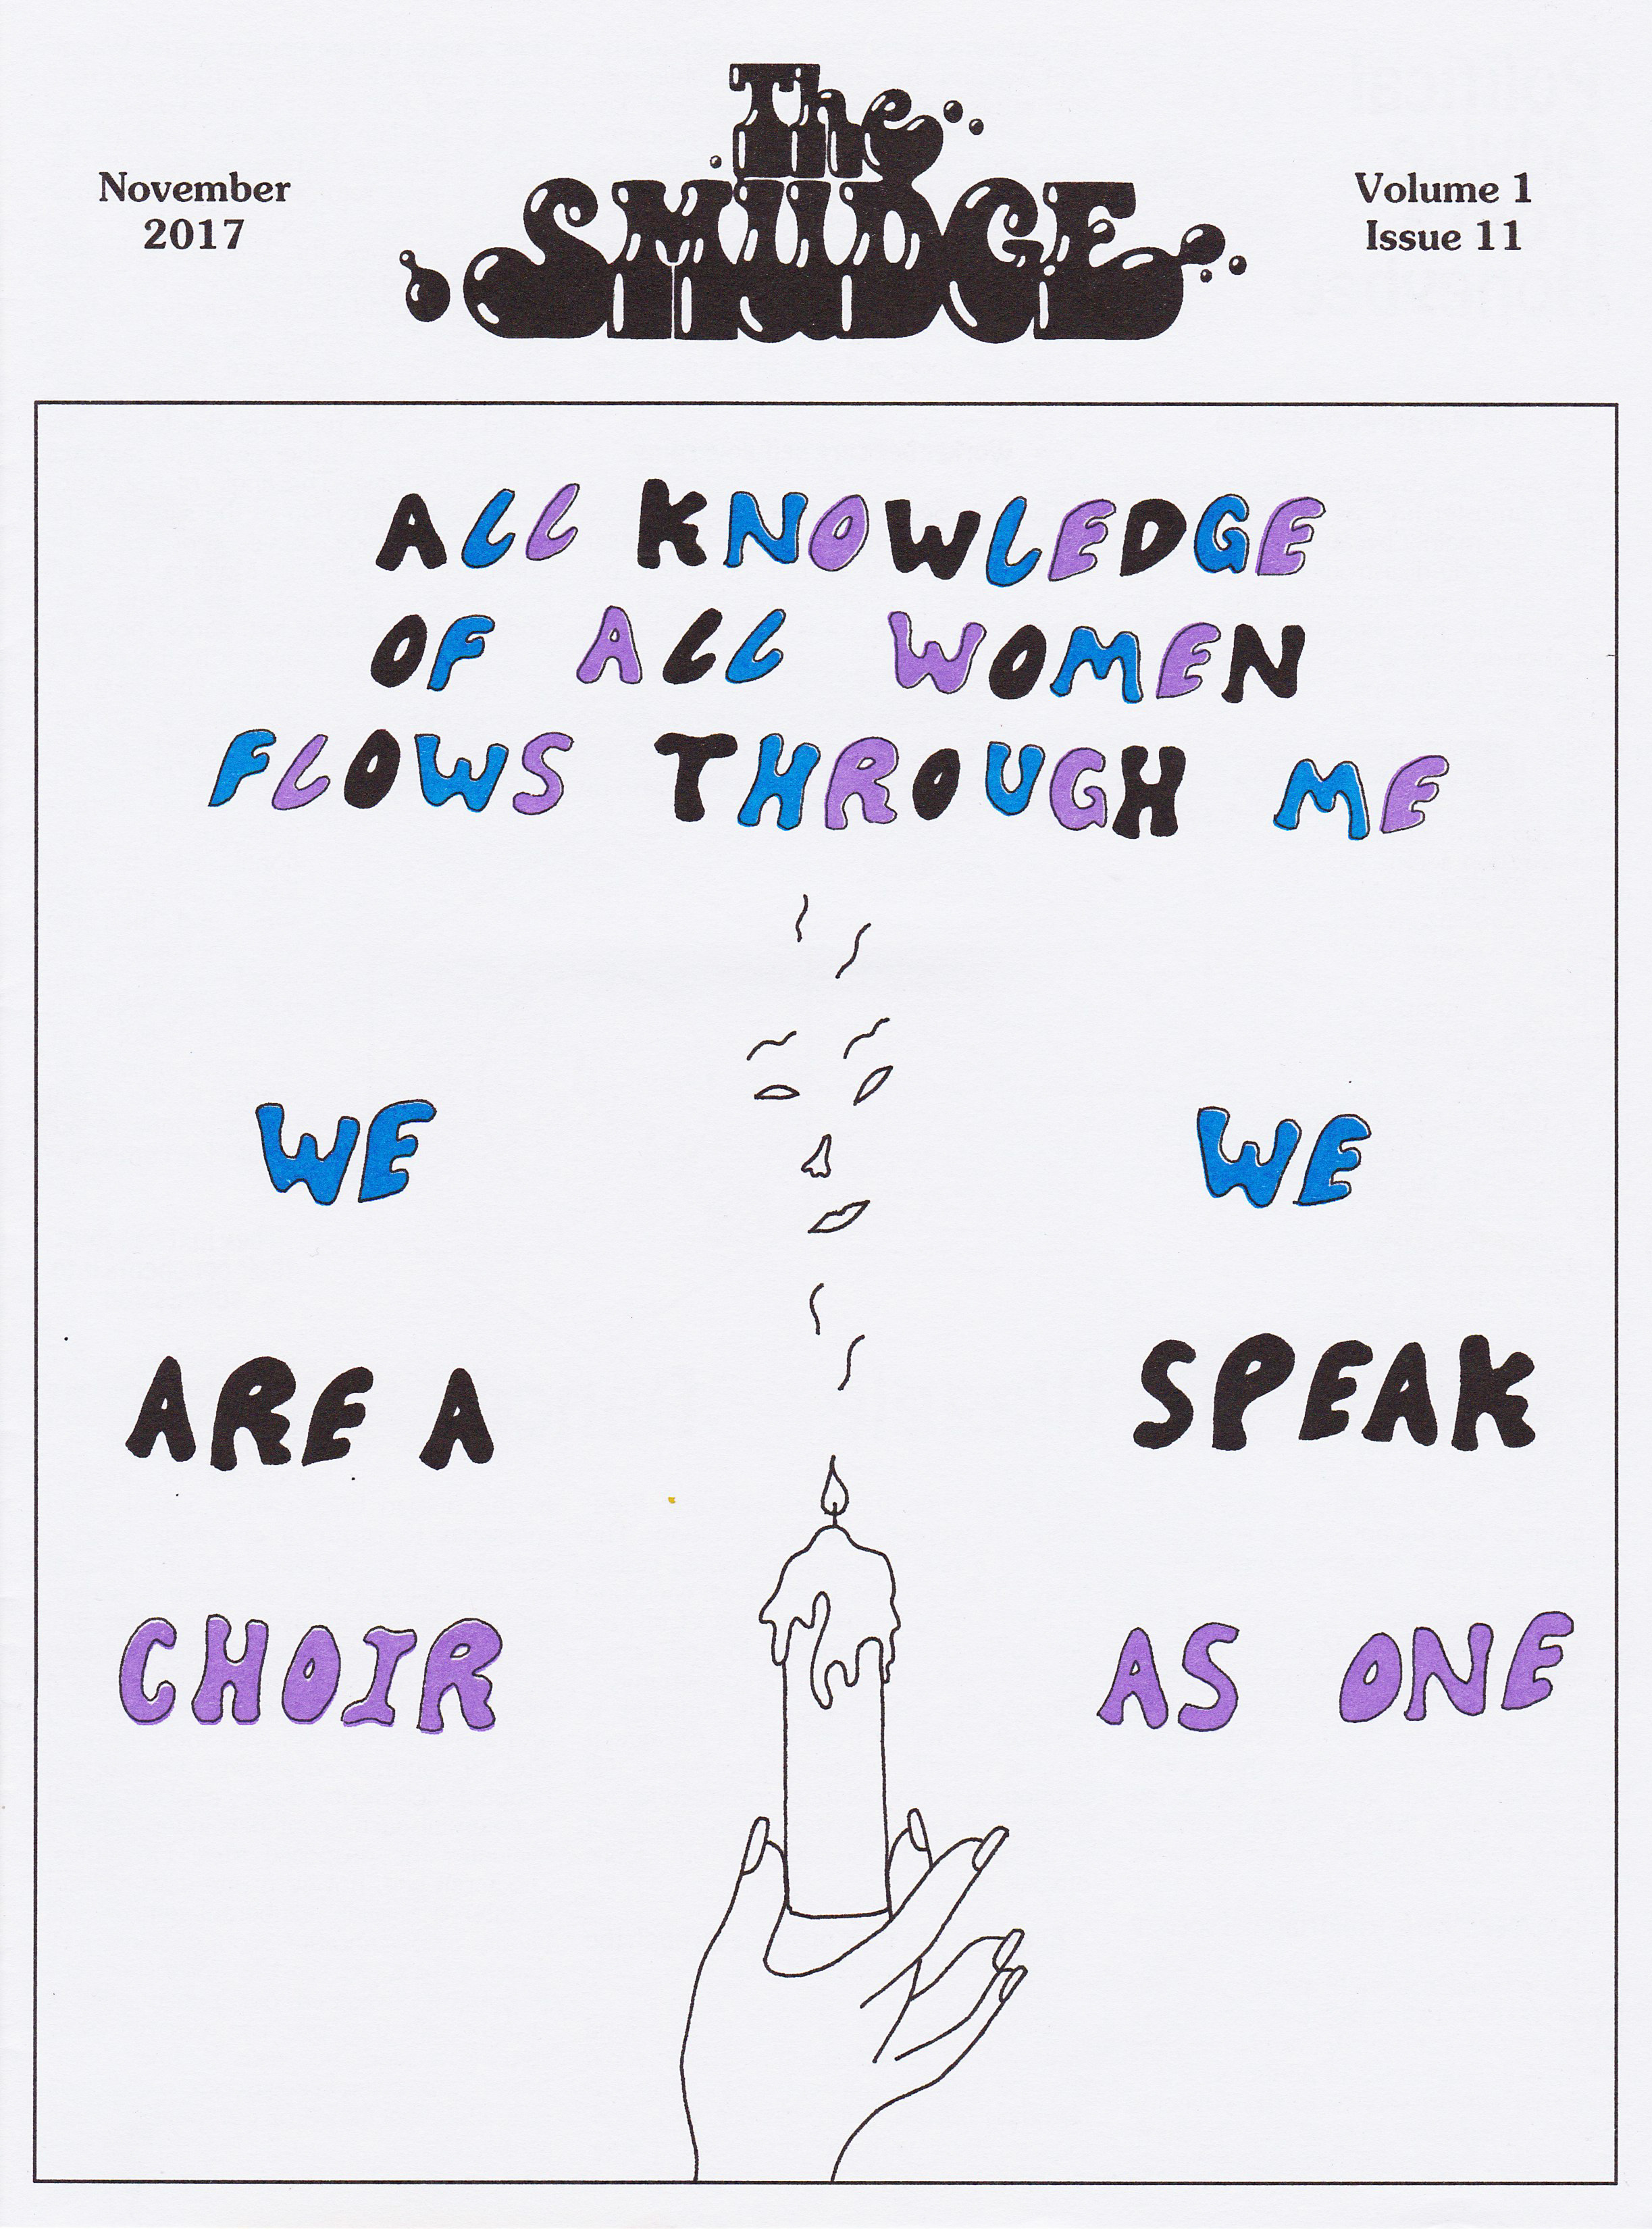 November
2017
The
SMUDGE
Volume 1
Issue 11
ALL KNOWLEDGE
OF ALL WOMEN
FLOWS THROUGH ME
WE
ARE A
CHOIR
WE
SPEAK
AS ONE